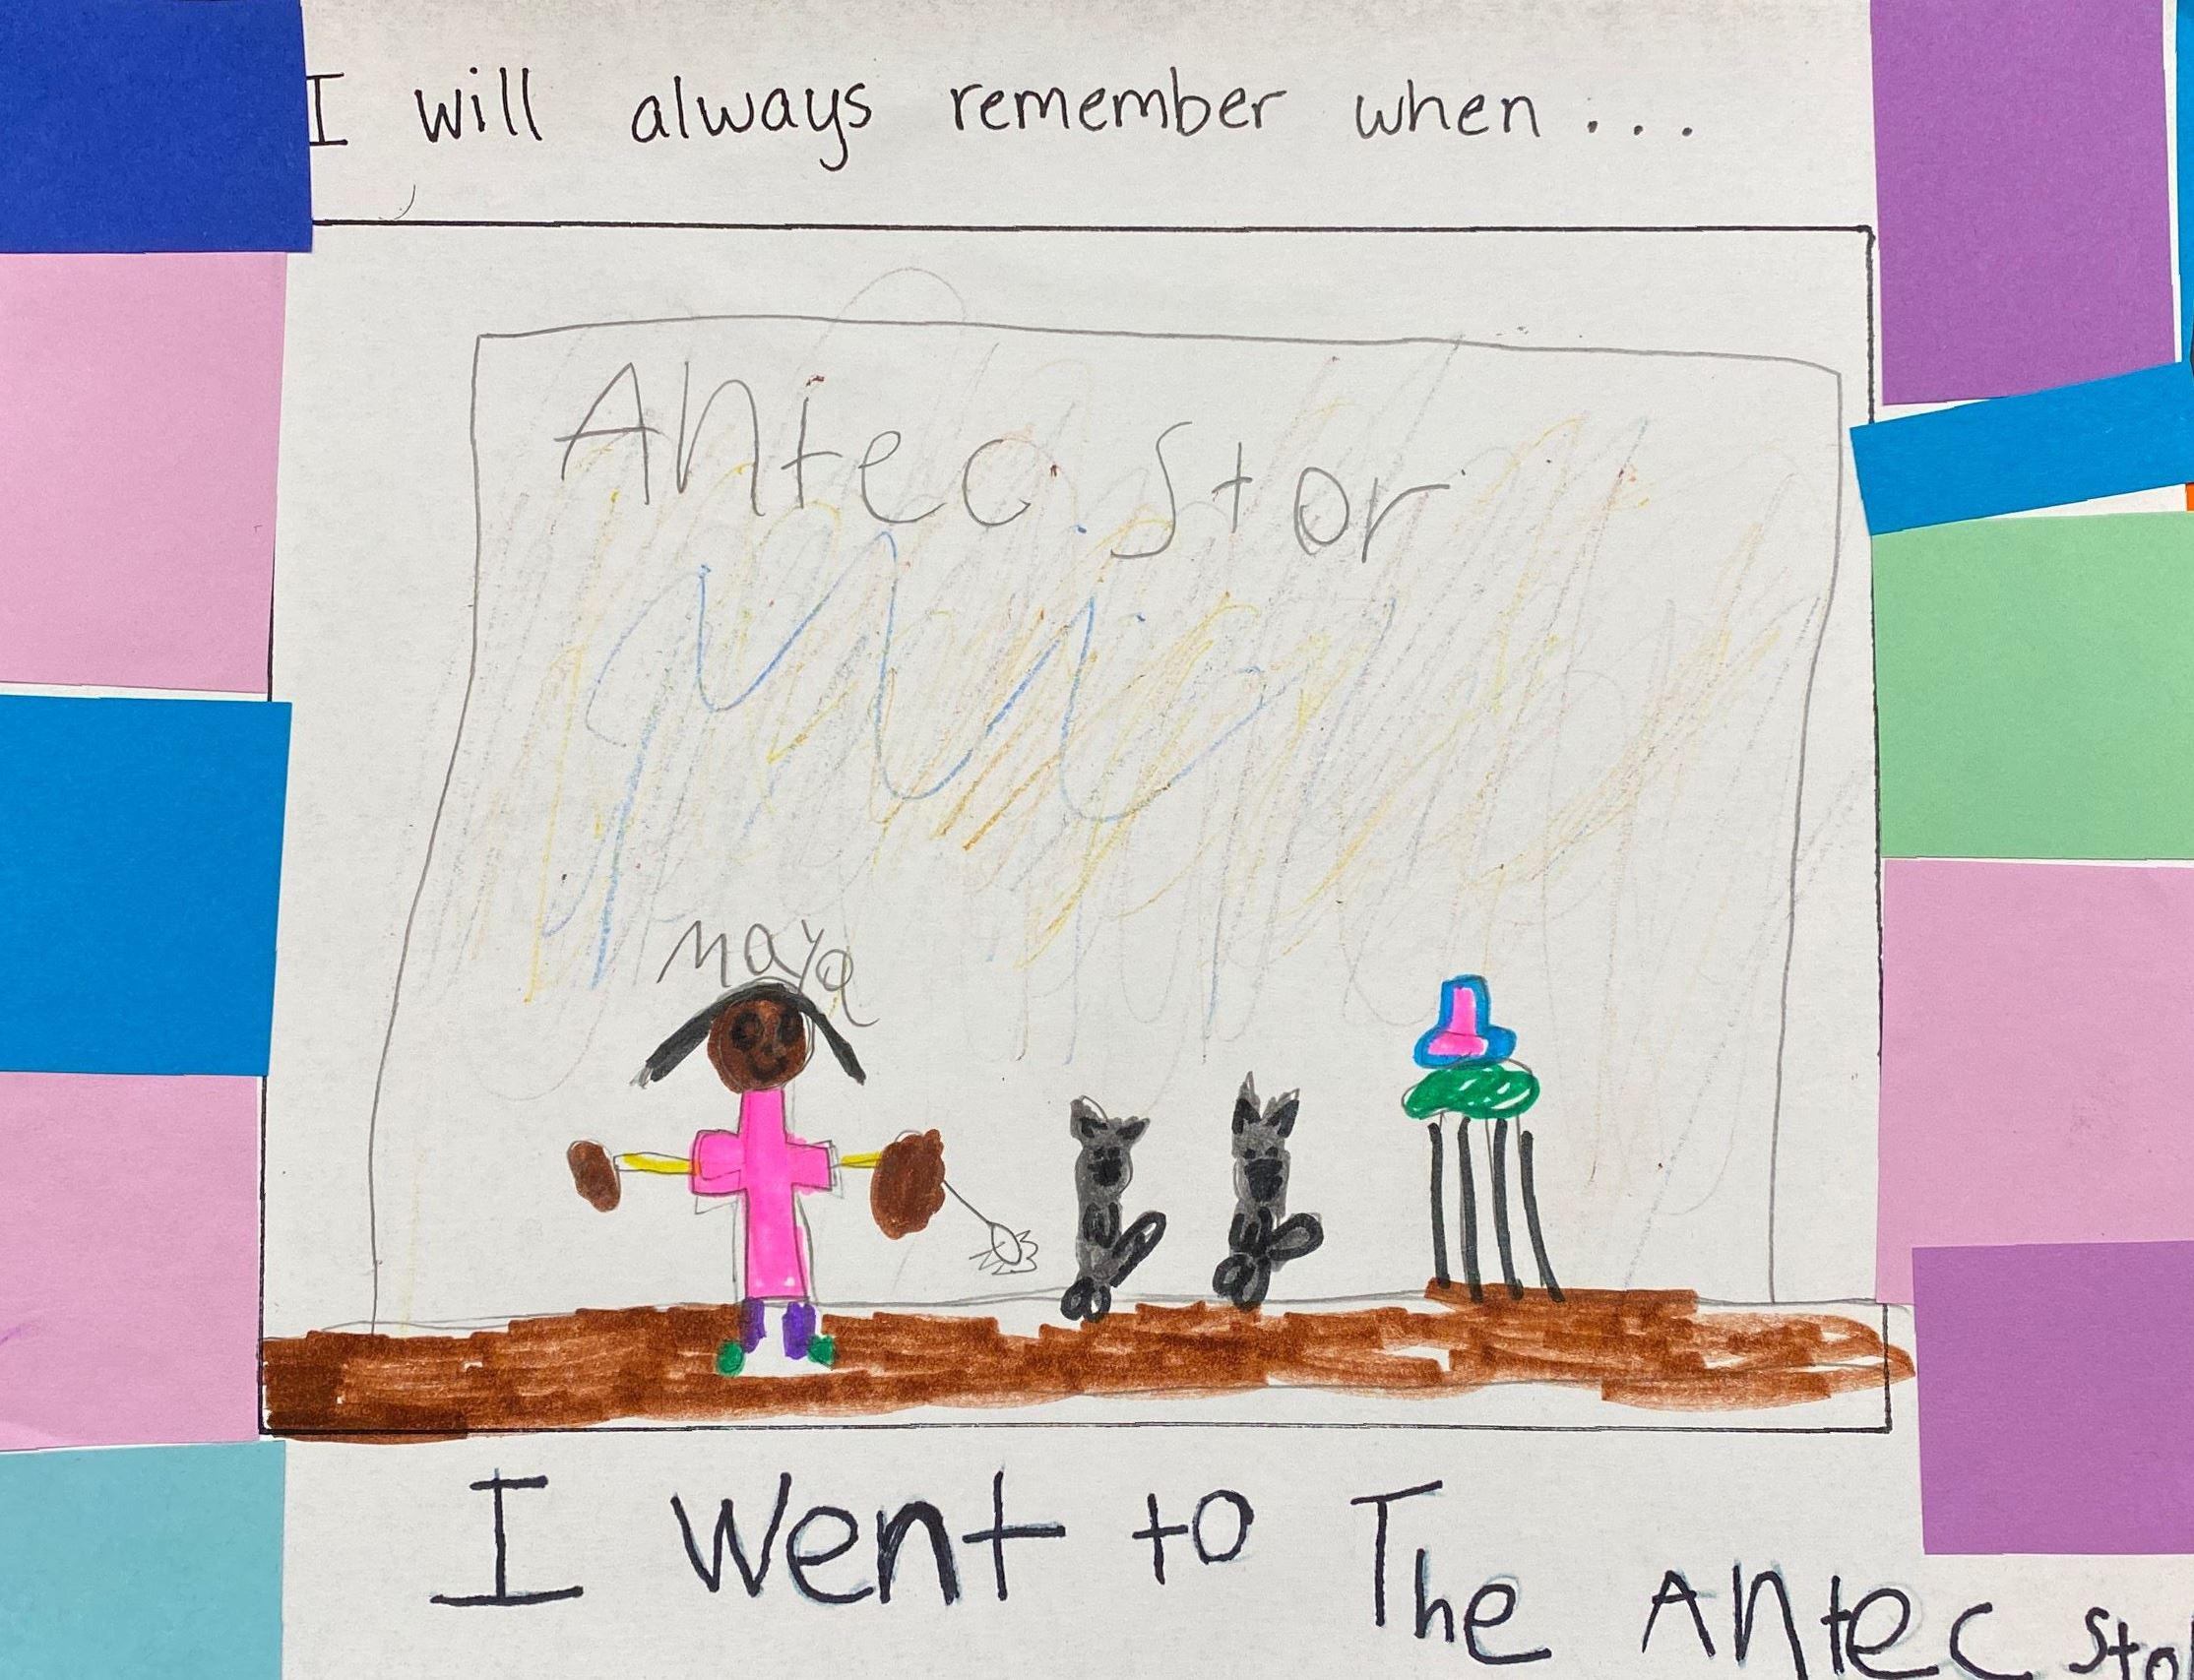 I will always remember when...
Antec Stor
Maya
I went to The Antec